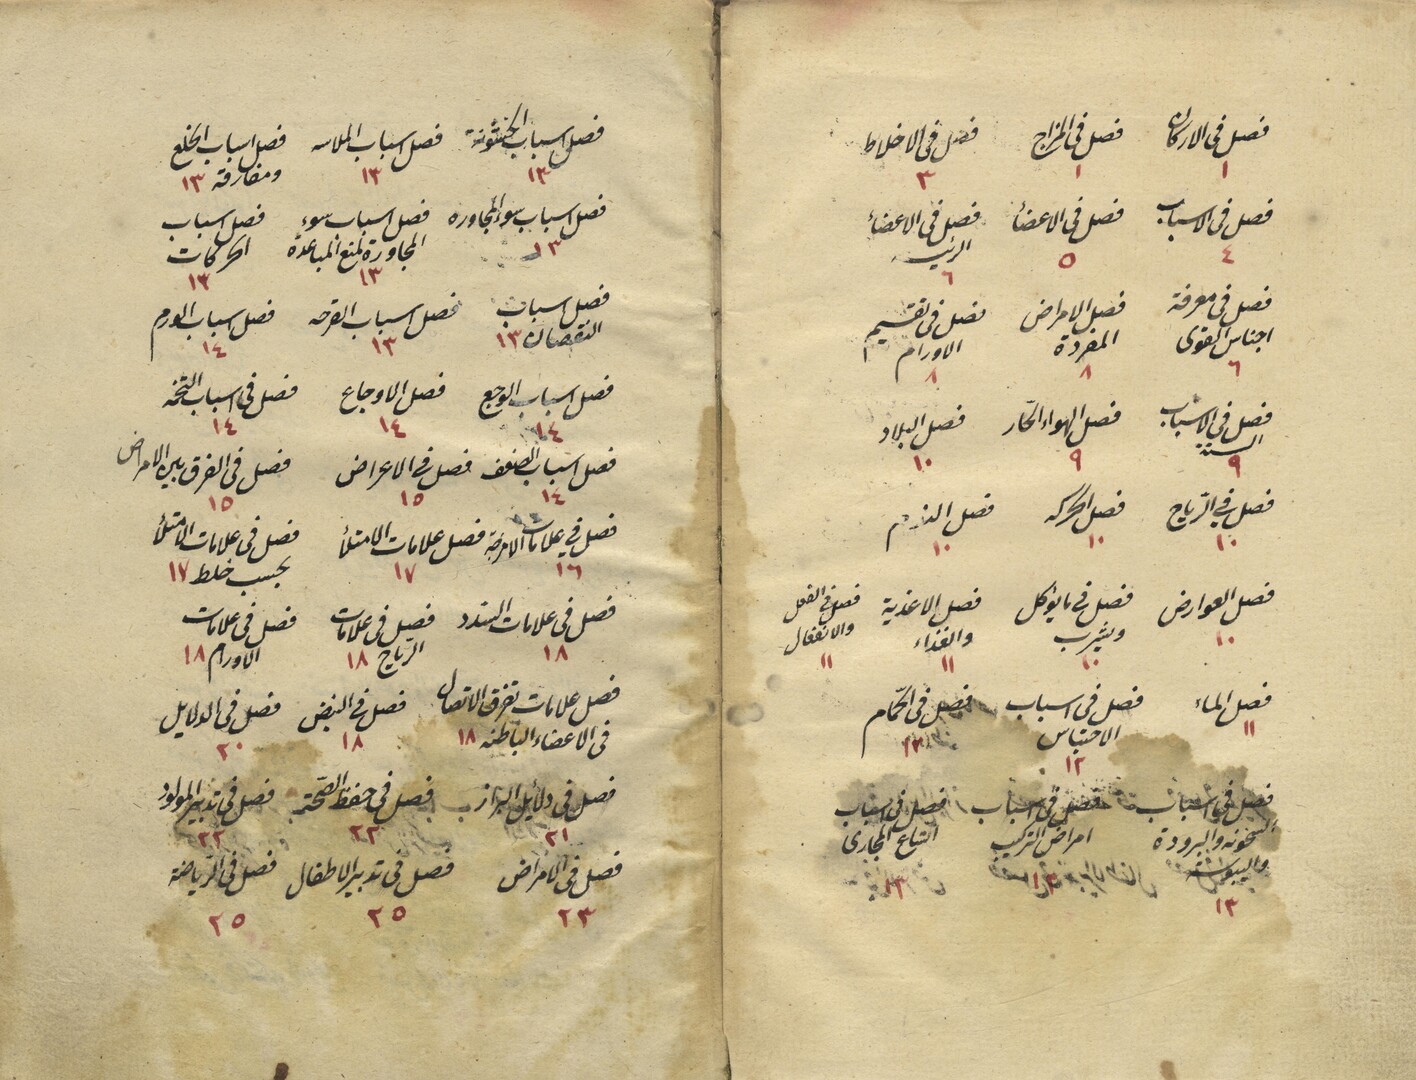 فصل فی الارکان فصل فی المزاج فصل فی الاخلاط
١ ١ ٣
فصل فی الاسباب فصل فی الاعضأ فصل فی الاعضأ
الرئیسه
٤ ٥ ٦
فصل فی معرفة فصل الامراض فصل فی تقسیم
اجناس القوی المفردة الاورام
٦ ٨ ٨
فصل فی الاسباب فصل الهواء الحار فصل البلاد
الستة
٩ ٩ ١٠
فصل فی الریاح فصل الحرکه فصل النوم
١٠ ١٠ ١٠
فصل العوارض فصل فی مایؤکل فصل الاغذیة فصل فی الفعل
ویشرب والغذاء والانفعال
١٠ ١٠ ١١ ١١
فصل الماء فصل فی اسباب فصل فی الحمّام
الاحتباس
١١ ١٢ ١٢
فصل فی اسباب فصل فی اسباب فصل فی اسباب
السخونه والبرودة امراض الترکیب اتساع المجاری
والیبوسة
١٣ ١٣ ١٣
فصل اسباب الخشونة فصل اسباب الملاسه فصل اسباب الخلع
ومفارقة
١٣ ١٣ ١٣
فصل اسباب سوء المجاوره فصل اسباب سوء فصل اسباب
المجاورة لمنع المباعدة الحرکات
١٣ ١٣ ١٣
فصل اسباب فصل اسباب القرحه فصل اسباب الورم
النقصان
١٣ ١٣ ١٤
فصل اسباب الوجع فصل الاوجاع فصل فی اسباب التخمه
١٤ ١٤ ١٤
فصل اسباب الضعف فصل فی الاعراض فصل فی الفرق بین الامراض
١٤ ١٥ ١٥
فصل فی علامات الامزجة فصل علامات الامتلأ فصل فی علامات الامتلأ
بحسب خلط
١٦ ١٧ ١٧
فصل فی علامات السدد فصل فی علامات فصل فی علامات
الریاح الاورام
١٨ ١٨ ١٨
فصل علامات تفرق الاتصال فصل فی النبض فصل فی الدلایل
فی الاعضاء الباطنه
١٨ ١٨ ٢٠
فصل فی دلایل البراز فصل فی حفظ الصّحة فصل فی تدبیر المولود
٢١ ٢٢ ٢٢
فصل فی الامراض فصل فی تدبیر الاطفال فصل فی الریاضة
٢٣ ٢٥ ٢٥